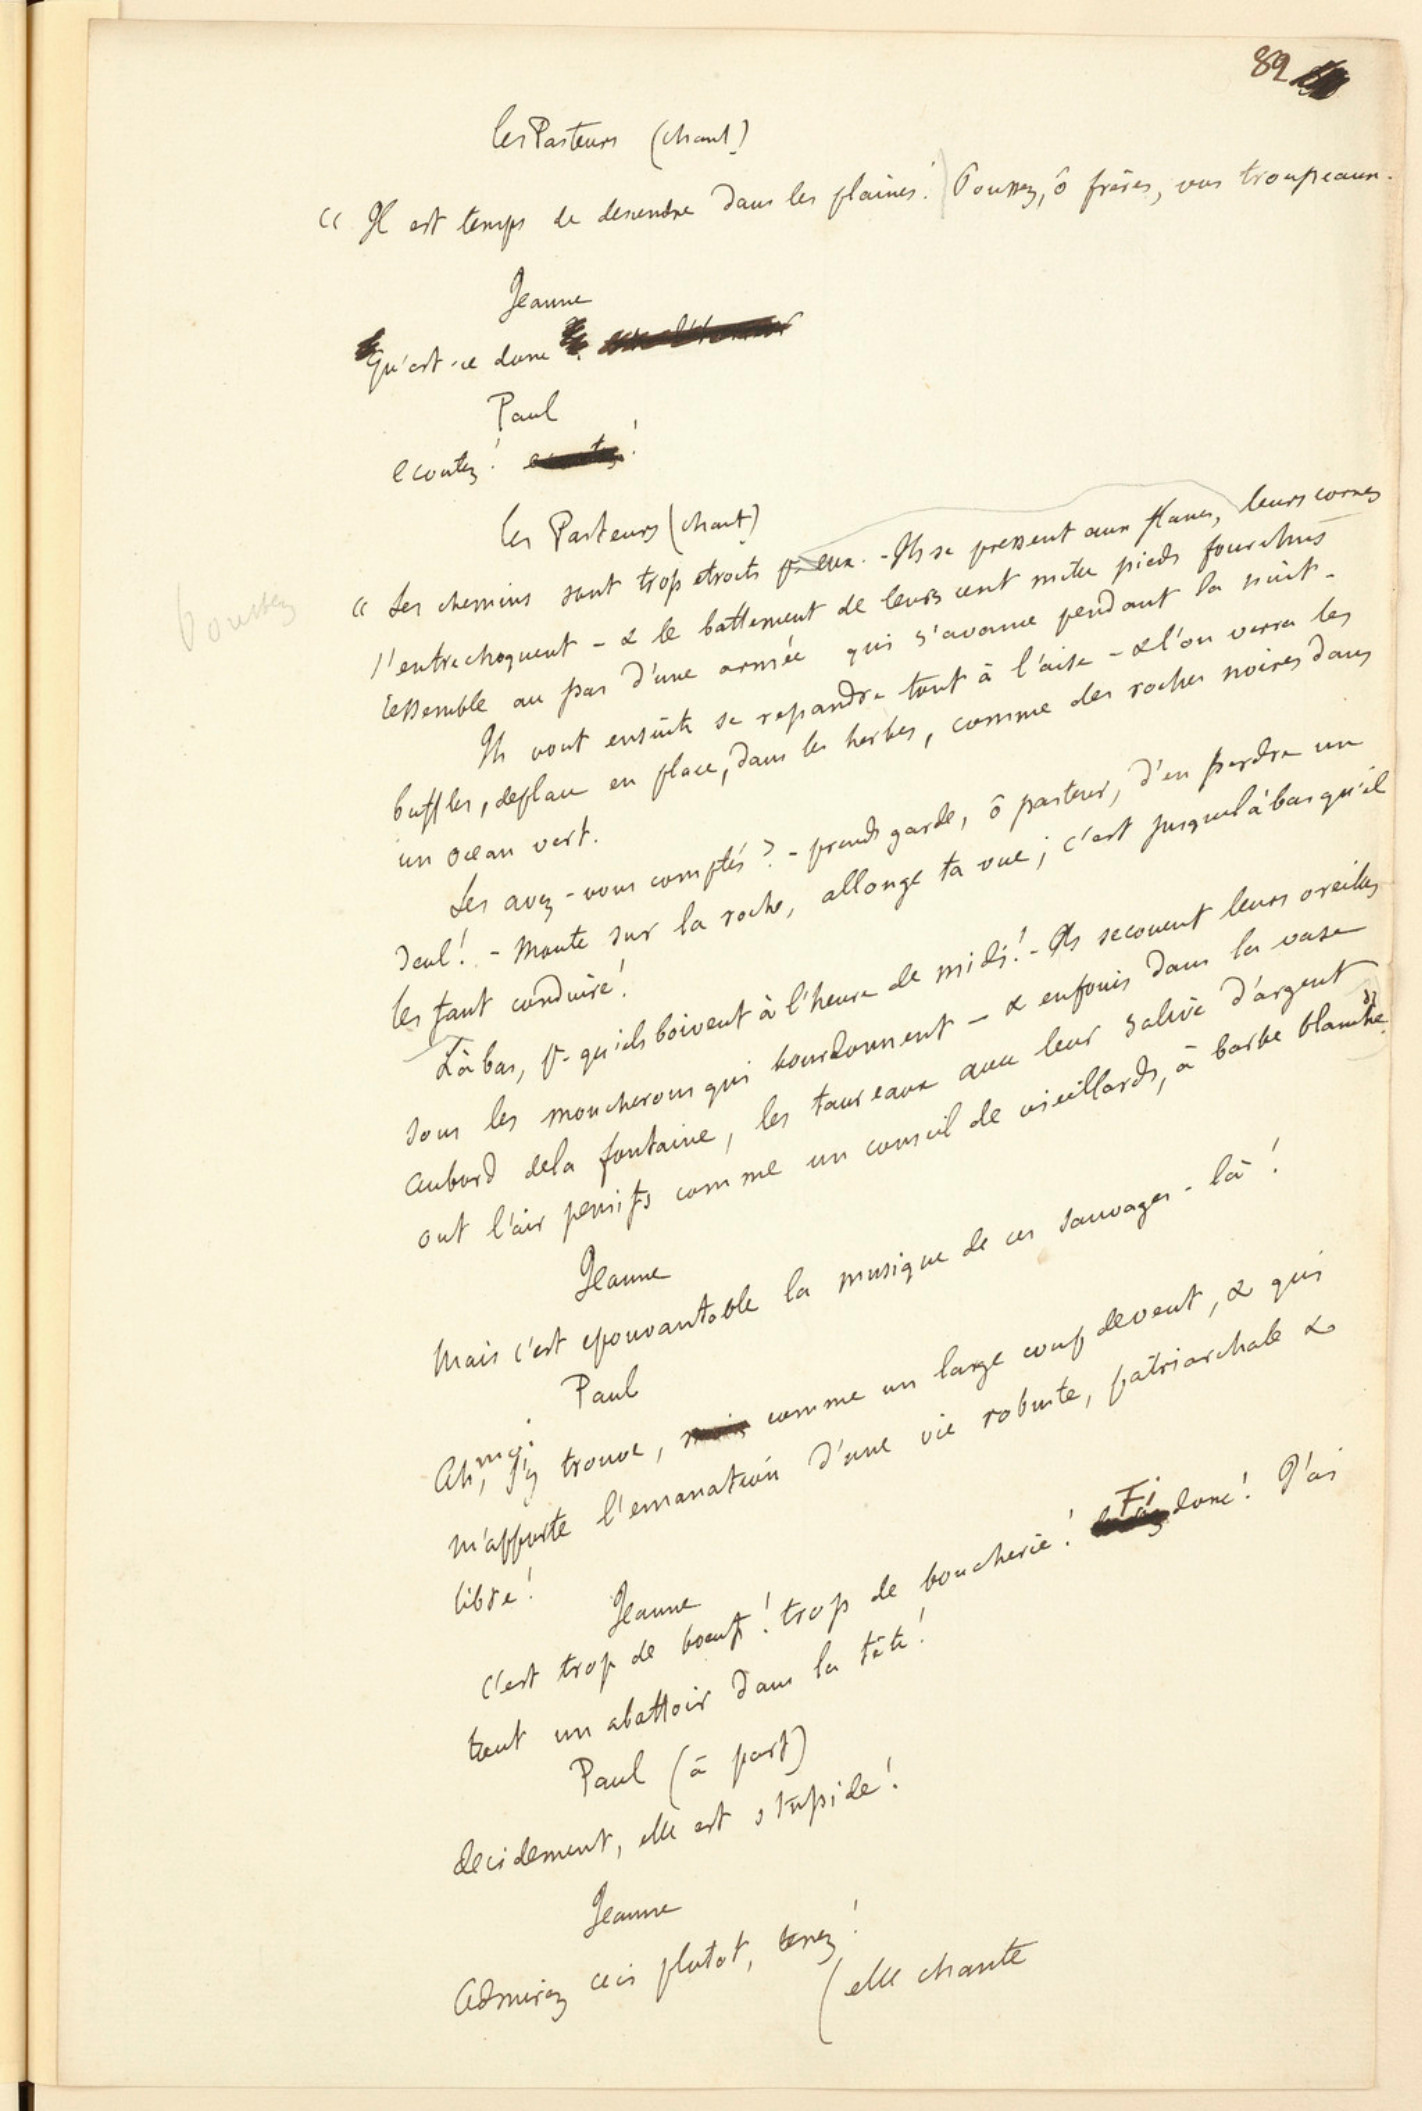 89
les Pasteurs (chant)
« Il est temps de descendre dans les plaines! Poussez, ô frères, vos troupeaux.
Jeanne
Qu'est-ce donc
Paul
ecoutez! !
les Pasteurs (chant)
« Les chemins sont trop etroits pr eux. - Ils se pressent aux flancs, leurs cornes
Poussez
s'entrechoquent - & le battement de leurs cent mille pieds fourchus
ressemble au pas d'une armée qui s'avance pendant la nuit -
Ils vont ensuite se repandre tout à l'aise - & l'on verra les
buffles, de place en place, dans les herbes, comme des roches noires dans
un ocean vert.
Les avez-vous comptés? - prends garde, ô pasteur, d'en perdre un
seul! - Monte sur la roche, allonge ta vue; c'est jusque là bas qu'il
les faut conduire!
Là bas, pr qu'ils boivent à l'heure de midi! - Ils secouent leurs oreilles
sous les moucherons qui bourdonnent - & enfouis dans la vase
au bord de la fontaine, les taureaux avec leur salive d'argent
ont l'air pensifs comme un conseil de vieillards, à barbe blanche
Jeanne
Mais c'est epouvantable la musique de ces sauvages-là!
Paul
moi
Ah, j'y trouve, comme un large coup de vent, & qui
m'apporte l'emanation d'une vie robuste, patriarchale &
libre!
Jeanne
Fi
c'est trop de boeuf! trop de boucherie! donc! J'ai
tout un abattoir dans la tête!
Paul (à part)
decidement, elle est stupide!
Jeanne
Admirez ceci plutot, tenez!
(elle chante